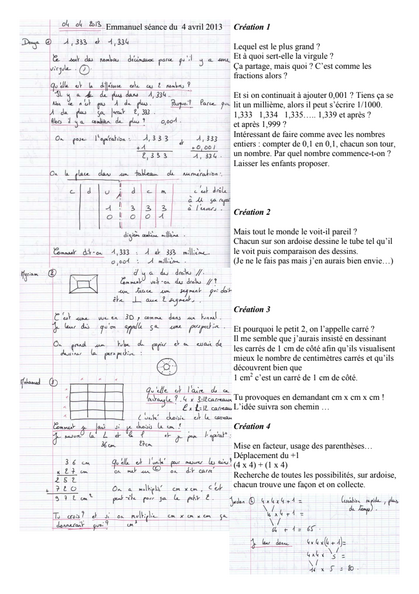 04 04 2013
Emmanuel séance du 4 avril 2013
1,333 et 1,334
Ce sont des nombres décimaux parce qu'il y a une
virgule.
Quelle est la différence entre ces 2 nombres ?
Il y a de plus dans 1,334.
1 de plus ça ferait 2,333.
Mais il y a combien ? 0,001.
On pose l'opération : 1,333 et 1,333
+ 1 + 0,001
2,333 1,334
On le place dans un tableau de numération.
c d u d c m
1 3 3 3
0 0 0 1
c'est drôle
à l'envers.
dixième centième millième
Comment dit-on 1,333 : 1 et 333 millième.
0,001 : 1 millième.
Myriam
Il y a des droites //.
Comment voit-on des droites // ?
on trace un segment qui doit
être ⊥ aux 2 segments.
C'est une vue en 3D, comme dans un tunnel.
Je leur dis qu'on appelle ça une perspective.
On prend un tube de papier et on essaie de
dessiner la perspective.
Mohamed
Quelle est l'aire de ce
rectangle ? 4 x 3 = 12 carreaux
L x l = 12 carreaux
L'unité choisie est le carreau
36cm 27cm
36 cm
x 27 cm
252
+ 720
972 cm²
Quelle est l'unité pour mesurer les aires ?
On a multiplié cm x cm, c'est
peut-être pour ça le petit 2.
Tu crois ? et si on multiplie cm x cm x cm ça
donnerait quoi ? cm³
Création 1
Lequel est le plus grand ?
Et à quoi sert-elle la virgule ?
Ça partage, mais quoi ? C'est comme les
fractions alors ?
Et si on continuait à ajouter 0,001 ? Tiens ça se
lit un millième, alors il peut s'écrire 1/1000.
1,333 1,334 1,335….. 1,339 et après ?
et après 1,999 ?
Intéressant de faire comme avec les nombres
entiers : compter de 0,1 en 0,1, chacun son tour,
un nombre. Par quel nombre commence-t-on ?
Laisser les enfants proposer.
Création 2
Mais tout le monde le voit-il pareil ?
Chacun sur son ardoise dessine le tube tel qu'il
le voit puis comparaison des dessins.
(Je ne le fais pas mais j'en aurais bien envie…)
Création 3
Et pourquoi le petit 2, on l'appelle carré ?
Il me semble que j'aurais insisté en dessinant
les carrés de 1 cm de côté afin qu'ils visualisent
mieux le nombre de centimètres carrés et qu'ils
découvrent bien que
1 cm² c'est un carré de 1 cm de côté.
Tu provoques en demandant cm x cm x cm !
L'idée suivra son chemin …
Création 4
Mise en facteur, usage des parenthèses…
Déplacement du +1
(4 x 4) + (1 x 4)
Recherche de toutes les possibilités, sur ardoise,
chacun trouve une façon et on collecte.
Jordan
4 x 4 x 4 + 1 =
64 + 1 = 65
Création rapide, plus
de temps).
Je leur donne 4 x 4 x (4 + 1) =
4 x 4 x 5 =
16 x 5 = 80